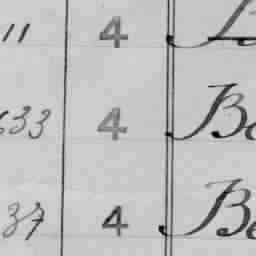 11 4
33 4 Be
37 4 Be